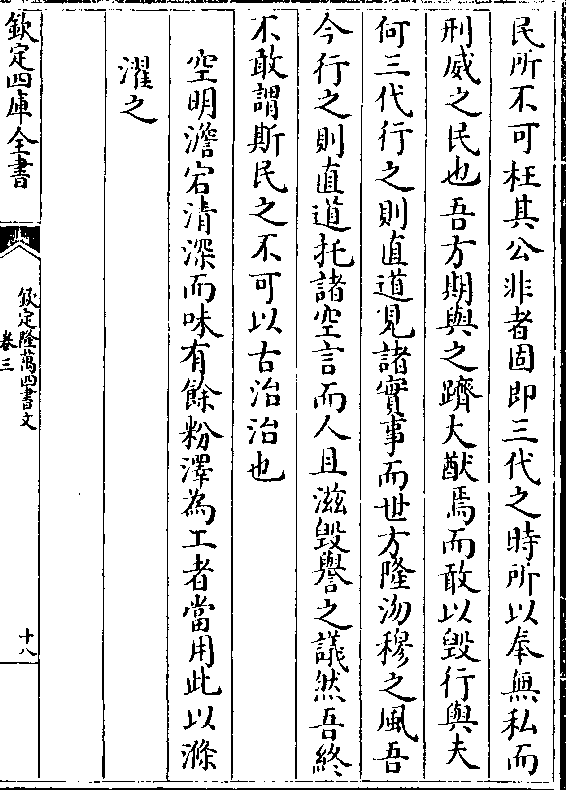 民所不可枉其公非者固即三代之時所以奉無私而
刑威之民也吾方期與之躋大猷焉而敢以毀行與夫
何三代行之則直道見諸實事而世方隆沕穆之風吾
今行之則直道托諸空言而人且滋毀譽之議然吾終
不敢謂斯民之不可以古治治也
空明澹宕清深而味有餘粉澤為工者當用此以滌
濯之
欽定四庫全書
欽定隆萬四書文
卷三
十八